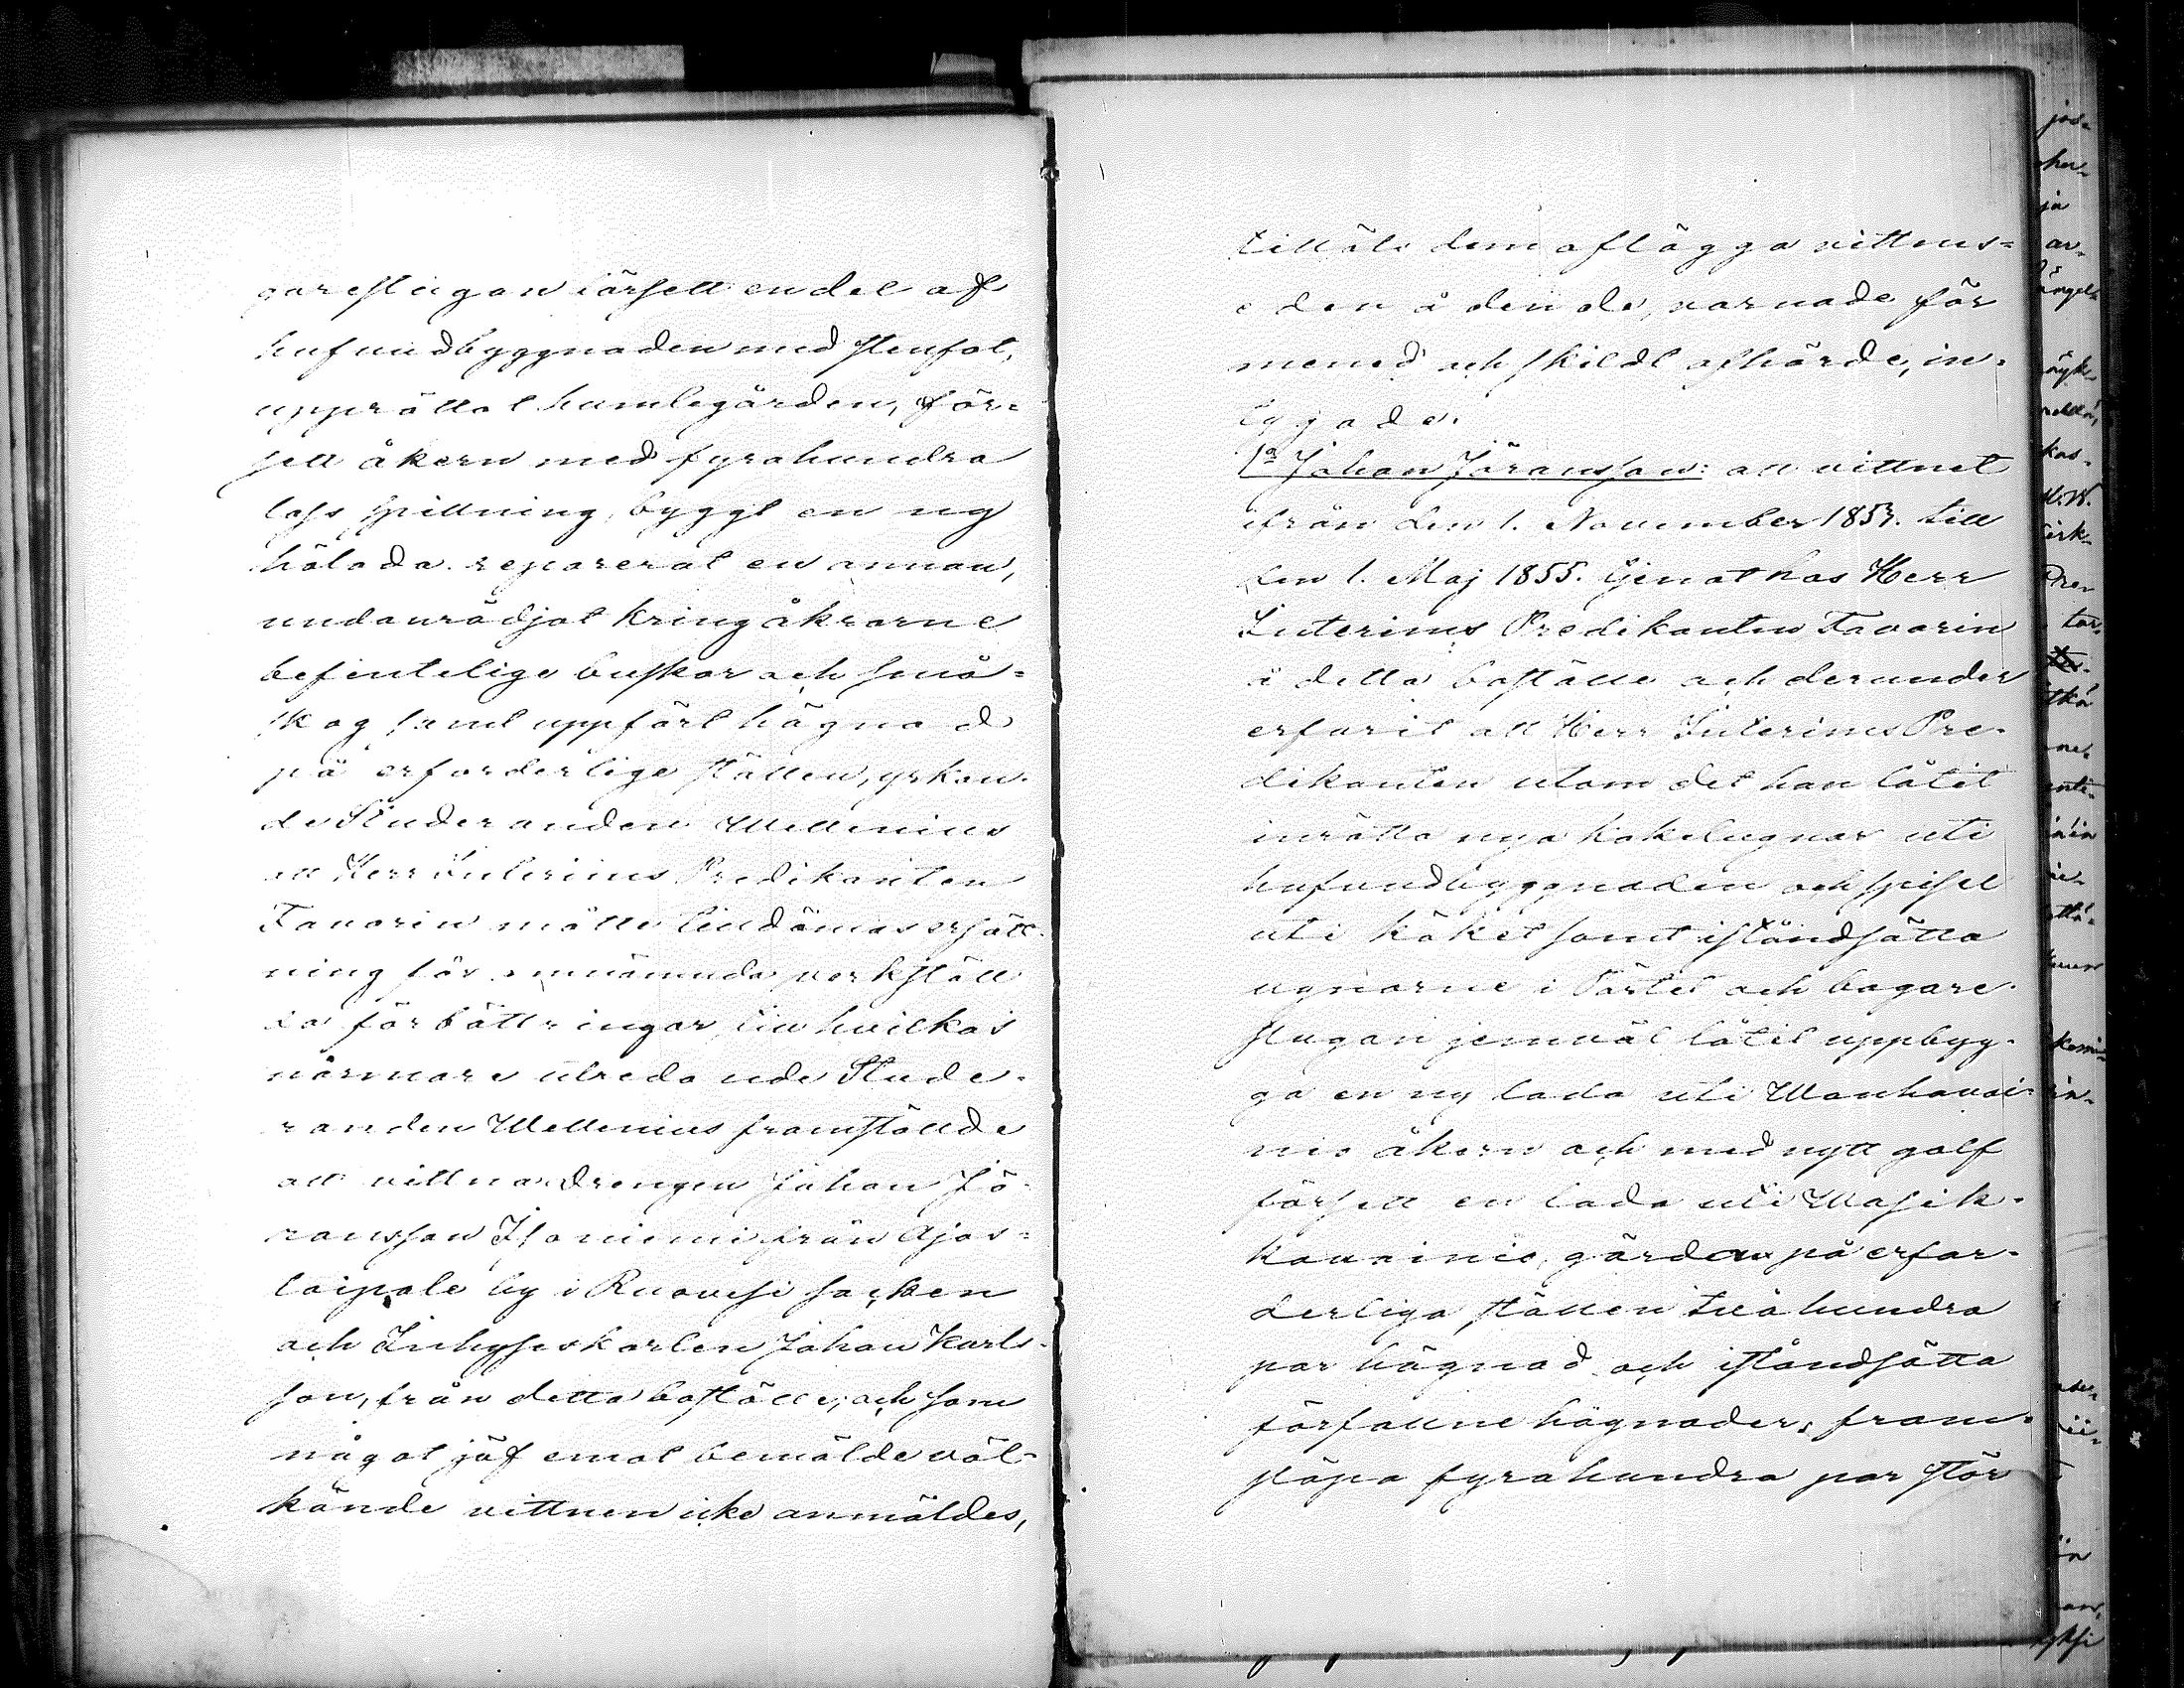 garestugan försett en del af
hufvudbyggnaden med stenfot,
upprättat humlegården, för=
sett åkern med fyrahundra
lass spillning, byggt en ny
hölada. reparerat en annan,
undanrödjat kring åkrarne
befinteliga buskar och små=
skog samt uppfört hägnad
på erforderlige ställen, yrkan-
de Studeranden Wellenius
att Herr Interims Predikanten
Favorin måtte tilldömas ersätt-
ning för omnämnda verkställ
da förbättringar, till hvilkas
närmare utredande Stude-
randen Wellenius framställde
att vittna drengen Johan Jö-
ransson Isoniemi från Ajos=
laipale by i Ruovesi socken
och Inhyseskarlen Johan Karls-
son, från detta boställe, och som
något jäf emot bemälde väl-
kände vittnen icke anmäldes,
tilläts dem aflägga vittnes=
eden å den de, varnade för
mened och skildt afhörde, in-
tygade.
1a Johan Jöransson: att vittnet
ifrån den 1. November 1853. till
den 1. Maj 1855. tjenat hos Herr
Interims Predikanten Favorin
å detta boställe och derunder
erfarit att Herr Interims Pre-
dikanten utom det han låtit
inrätta nya kakelugnar uti
hufvudbyggnaden och spisel
uti köket samt iståndsätta
ugnarne i Pörtet och bagare-
stugan jemväl låtit uppbyg-
ga en ny lada uti Wanhavai-
nio åkern och med nytt golf
försett en lada uti Wasik-
kavainio, gärdan på erfor-
derliga ställen tvåhundra
par hägnad och iståndsätta
förfallne hägnader, fram-
släpa fyrahundra par stör